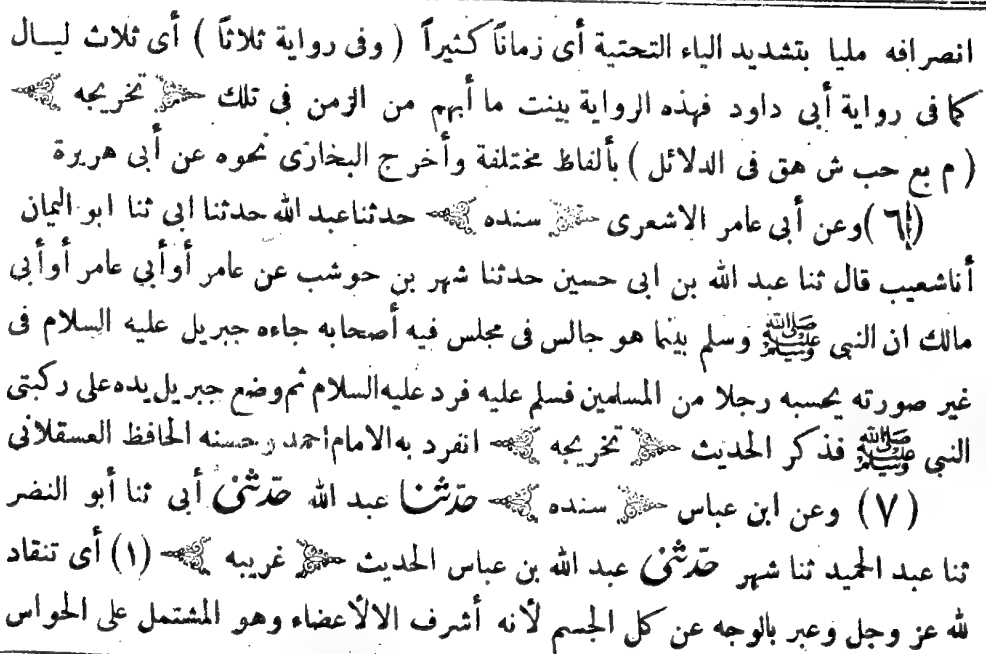 انصرافه مليا بتشديد الياء التحتية أى زماناً كثيراً ( وفى رواية ثلاثاً ) أى ثلاث ليــال
كما فى رواية أبى داود فهذه الرواية بينت ما أبهم من الزمن فى تلك تخريجه
( م بع حب ش هق فى الدلائل ) بألفاظ مختلفة وأخرج البخارى نحوه عن أبى هريرة
(٦) وعن أبى عامر الاشعرى سنده حدثنا عبد الله حدثنا ابى ثنا ابو اليمان
أنا شعيب قال ثنا عبد الله بن ابى حسين حدثنا شهر بن حوشب عن عامر أو أبي عامر أو أبى
مالك ان النبى صلى الله عليه وسلم وسلم بينما هو جالس فى مجلس فيه أصحابه جاءه جبريل عليه السلام فى
غير صورته يحسبه رجلا من المسلمين فسلم عليه فرد عليه السلام ثم وضع جبريل يده على ركبتى
النبي صلى الله عليه وسلم فذكر الحديث تخريجه انفرد به الامام احمد وحسنه الحافظ العسقلانى
(٧) وعن ابن عباس سنده حدثنا عبد الله حدثنى أبى ثنا أبو النضر
ثنا عبد الحميد ثنا شهر حدثنى عبد الله بن عباس الحديث غريبه (١) أى تنقاد
لله عز وجل وعبر بالوجه عن كل الجسم لأنه أشرف الالأعضاء وهو المشتمل على الحواس